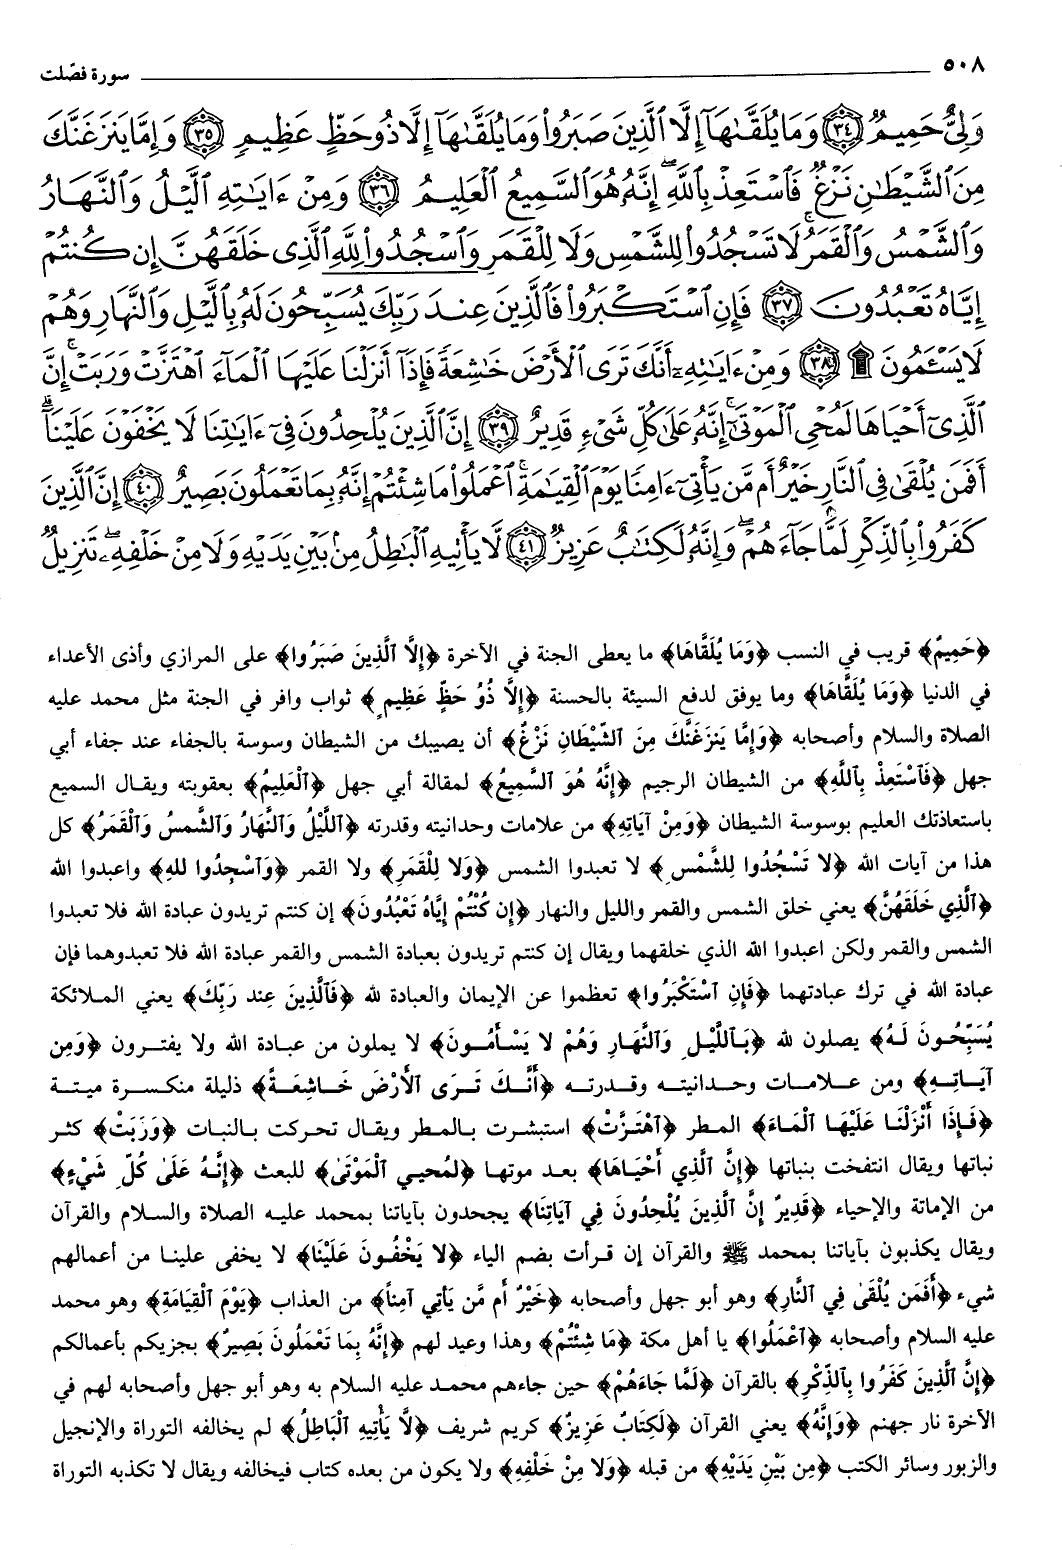 ٥٠٨ سورة فصّلت
وَلِيٌّ حَمِيمٌ ﴿٣٤﴾ وَمَا يُلَقَّىٰهَآ إِلَّا ٱلَّذِينَ صَبَرُوا۟ وَمَا يُلَقَّىٰهَآ إِلَّا ذُو حَظٍّ عَظِيمٍ ﴿٣٥﴾ وَإِمَّا يَنزَغَنَّكَ
مِنَ ٱلشَّيْطَٰنِ نَزْغٌ فَٱسْتَعِذْ بِٱللَّهِ ۖ إِنَّهُۥ هُوَ ٱلسَّمِيعُ ٱلْعَلِيمُ ﴿٣٦﴾ وَمِنْ ءَايَٰتِهِ ٱلَّيْلُ وَٱلنَّهَارُ
وَٱلشَّمْسُ وَٱلْقَمَرُ ۚ لَا تَسْجُدُوا۟ لِلشَّمْسِ وَلَا لِلْقَمَرِ وَٱسْجُدُوا۟ لِلَّهِ ٱلَّذِى خَلَقَهُنَّ إِن كُنتُمْ
إِيَّاهُ تَعْبُدُونَ ﴿٣٧﴾ فَإِنِ ٱسْتَكْبَرُوا۟ فَٱلَّذِينَ عِندَ رَبِّكَ يُسَبِّحُونَ لَهُۥ بِٱلَّيْلِ وَٱلنَّهَارِ وَهُمْ
لَا يَسْـَٔمُونَ ۩ ﴿٣٨﴾ وَمِنْ ءَايَٰتِهِۦٓ أَنَّكَ تَرَى ٱلْأَرْضَ خَٰشِعَةً فَإِذَآ أَنزَلْنَا عَلَيْهَا ٱلْمَآءَ ٱهْتَزَّتْ وَرَبَتْ ۚ إِنَّ
ٱلَّذِىٓ أَحْيَاهَا لَمُحْىِ ٱلْمَوْتَىٰٓ ۚ إِنَّهُۥ عَلَىٰ كُلِّ شَىْءٍ قَدِيرٌ ﴿٣٩﴾ إِنَّ ٱلَّذِينَ يُلْحِدُونَ فِىٓ ءَايَٰتِنَا لَا يَخْفَوْنَ عَلَيْنَآ ۗ
أَفَمَن يُلْقَىٰ فِى ٱلنَّارِ خَيْرٌ أَم مَّن يَأْتِىٓ ءَامِنًا يَوْمَ ٱلْقِيَٰمَةِ ۚ ٱعْمَلُوا۟ مَا شِئْتُمْ إِنَّهُۥ بِمَا تَعْمَلُونَ بَصِيرٌ ﴿٤٠﴾ إِنَّ ٱلَّذِينَ
كَفَرُوا۟ بِٱلذِّكْرِ لَمَّا جَآءَهُمْ ۖ وَإِنَّهُۥ لَكِتَٰبٌ عَزِيزٌ ﴿٤١﴾ لَّا يَأْتِيهِ ٱلْبَٰطِلُ مِنۢ بَيْنِ يَدَيْهِ وَلَا مِنْ خَلْفِهِۦ ۖ تَنزِيلٌ
﴿حَمِيمٌ﴾ قريب في النسب ﴿وَمَا يُلَقَّاهَا﴾ ما يعطى الجنة في الآخرة ﴿إِلَّا ٱلَّذِينَ صَبَرُوا﴾ على المرازي وأذى الأعداء
في الدنيا ﴿وَمَا يُلَقَّاهَا﴾ وما يوفق لدفع السيئة بالحسنة ﴿إِلَّا ذُو حَظٍّ عَظِيمٍ﴾ ثواب وافر في الجنة مثل محمد عليه
الصلاة والسلام وأصحابه ﴿وَإِمَّا يَنزَغَنَّكَ مِنَ ٱلشَّيْطَانِ نَزْغٌ﴾ أن يصيبك من الشيطان وسوسة بالجفاء عند جفاء أبي
جهل ﴿فَٱسْتَعِذْ بِٱللَّهِ﴾ من الشيطان الرجيم ﴿إِنَّهُ هُوَ ٱلسَّمِيعُ﴾ لمقالة أبي جهل ﴿ٱلْعَلِيمُ﴾ بعقوبته ويقال السميع
باستعاذتك العليم بوسوسة الشيطان ﴿وَمِنْ آيَاتِهِ﴾ من علامات وحدانيته وقدرته ﴿ٱللَّيْلُ وَٱلنَّهَارُ وَٱلشَّمْسُ وَٱلْقَمَرُ﴾ كل
هذا من آيات الله ﴿لَا تَسْجُدُوا لِلشَّمْسِ﴾ لا تعبدوا الشمس ﴿وَلَا لِلْقَمَرِ﴾ ولا القمر ﴿وَٱسْجِدُوا للهِ﴾ واعبدوا الله
﴿ٱلَّذِي خَلَقَهُنَّ﴾ يعني خلق الشمس والقمر والليل والنهار ﴿إِن كُنْتُمْ إِيَّاهُ تَعْبُدُونَ﴾ إن كنتم تريدون عبادة الله فلا تعبدوا
الشمس والقمر ولكن اعبدوا الله الذي خلقهما ويقال إن كنتم تريدون بعبادة الشمس والقمر عبادة الله فلا تعبدوهما فإن
عبادة الله في ترك عبادتهما ﴿فَإِنِ ٱسْتَكْبَرُوا﴾ تعظموا عن الإيمان والعبادة لله ﴿فَٱلَّذِينَ عِند رَبِّكَ﴾ يعني الملائكة
يُسَبِّحُونَ لَهُ﴾ يصلون لله ﴿بَٱللَّيْلِ وَٱلنَّهَارِ وَهُمْ لا يَسْأَمُونَ﴾ لا يملون من عبادة الله ولا يفترون ﴿وَمِن
آيَاتِهِ﴾ ومن علامات وحدانيته وقدرته ﴿أَنَّكَ تَرَى ٱلأَرْضَ خَاشِعَةً﴾ ذليلة منكسرة ميتة
﴿فَإِذَا أَنْزَلْنَا عَلَيْهَا ٱلْمَاءَ﴾ المطر ﴿ٱهْتَزَّتْ﴾ استبشرت بالمطر ويقال تحركت بالنبات ﴿وَرَبَتْ﴾ كثر
نباتها ويقال انتفخت بنباتها ﴿إِنَّ ٱلَّذِي أَحْيَاهَا﴾ بعد موتها ﴿لَمُحيي ٱلْمَوْتَىٰ﴾ للبعث ﴿إِنَّهُ عَلَىٰ كُلِّ شَيْءٍ﴾
من الإماتة والإحياء ﴿قَدِيرٌ إِنَّ ٱلَّذِينَ يُلْحِدُونَ فِي آيَاتِنَا﴾ يجحدون بآياتنا بمحمد عليه الصلاة والسلام والقرآن
ويقال يكذبون بآياتنا بمحمد ﷺ والقرآن إن قرأت بضم الياء ﴿لا يَخْفُونَ عَلَيْنَا﴾ لا يخفى علينا من أعمالهم
شيء ﴿أَفَمَن يُلْقَىٰ فِي ٱلنَّارِ﴾ وهو أبو جهل وأصحابه ﴿خَيْرٌ أم مَّن يَأتِي آمِناً﴾ من العذاب ﴿يَوْمَ ٱلْقِيَامَةِ﴾ وهو محمد
عليه السلام وأصحابه ﴿ٱعْمَلُوا﴾ يا أهل مكة ﴿مَا شِئْتُمْ﴾ وهذا وعيد لهم ﴿إِنَّهُ بِمَا تَعْمَلُونَ بَصِيرٌ﴾ يجزيكم بأعمالكم
﴿إِنَّ ٱلَّذِينَ كَفَرُوا بِٱلذِّكْرِ﴾ بالقرآن ﴿لَمَّا جَاءَهُمْ﴾ حين جاءهم محمد عليه السلام به وهو أبو جهل وأصحابه لهم في
الآخرة نار جهنم ﴿وَإِنَّهُ﴾ يعني القرآن ﴿لَكِتَابٌ عَزِيزٌ﴾ كريم شريف ﴿لَّا يَأْتِيهِ ٱلْبَاطِلُ﴾ لم يخالفه التوراة والإنجيل
والزبور وسائر الكتب ﴿مِن بَيْنِ يَدَيْهِ﴾ من قبله ﴿وَلا مِنْ خَلْفِهِ﴾ ولا يكون من بعده كتاب فيخالفه ويقال لا تكذبه التوراة